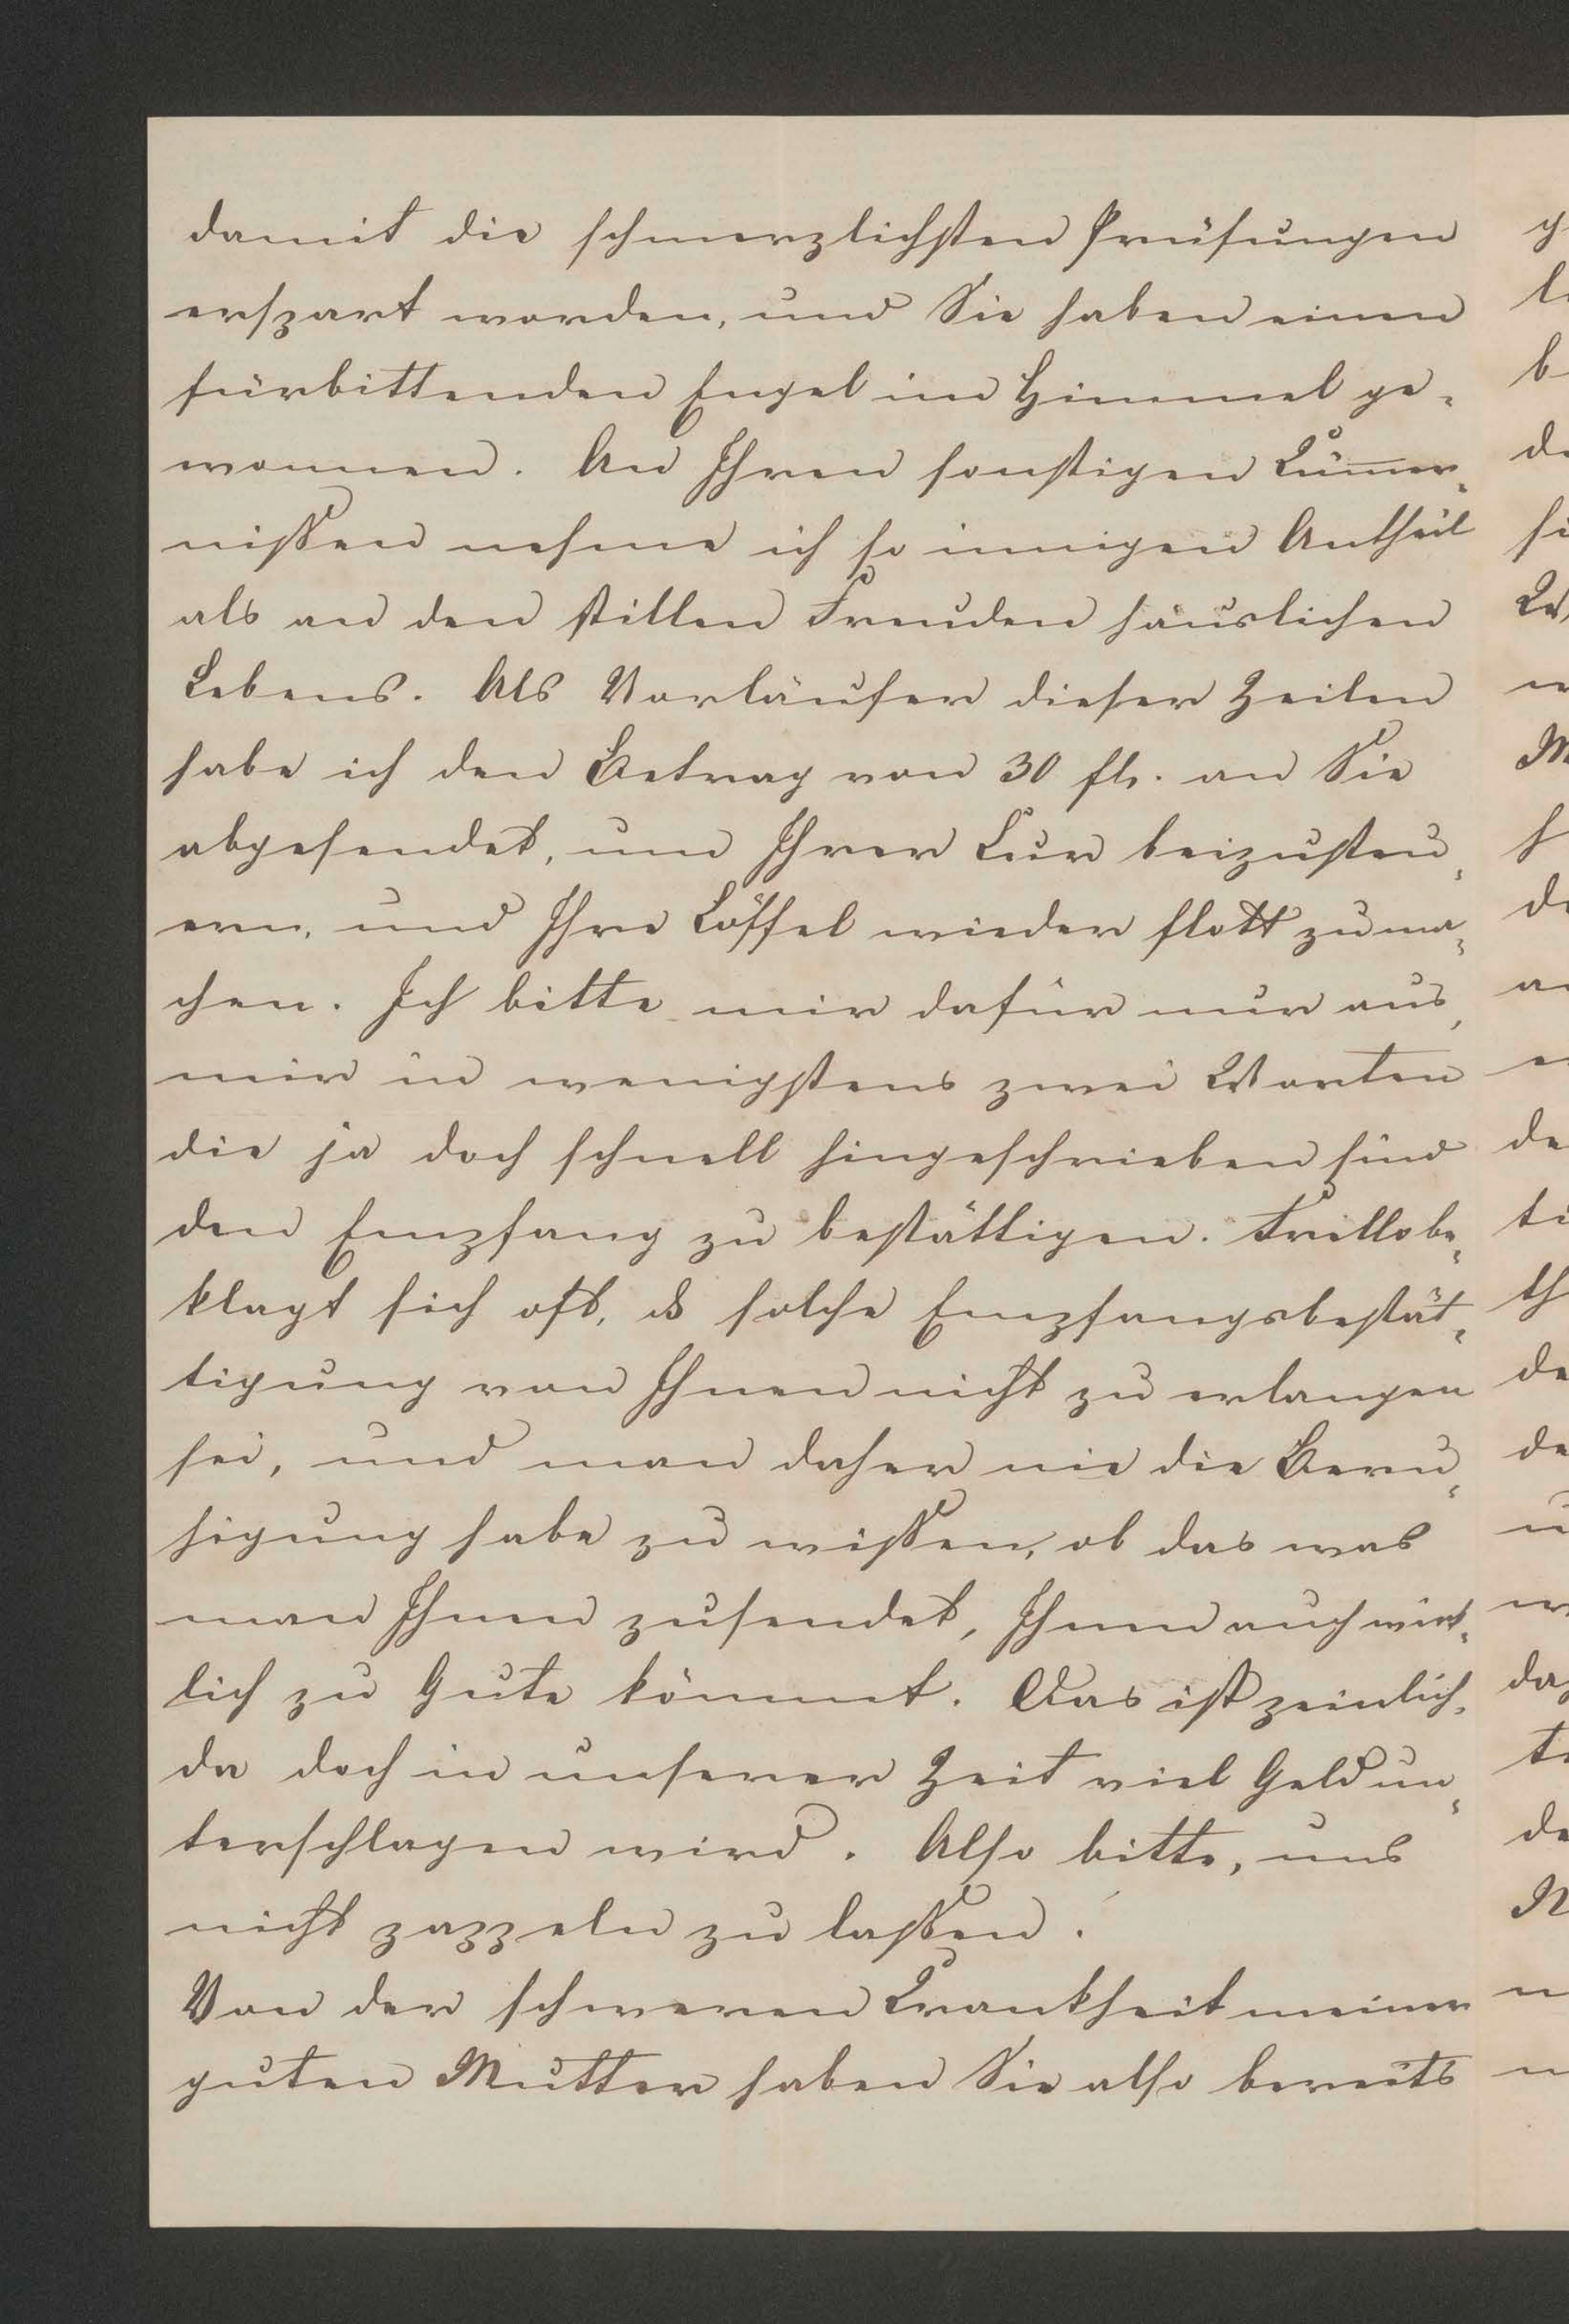 damit die schmerzlichsten Prüfungen
erspart worden, und Sie haben einen
fürbittenden Engel im Himmel ge-
wonnen. An Ihren sonstigen Küm̅er-
nißen nehme ich so innigen Antheil
als an den stillen Freuden häuslichen
Lebens. Als Vorläufer dieser Zeilen
habe ich den Betrag von 30 fl. an Sie
abgesendet, um Ihrer Kur beizusteu-
ern, und Ihre Löffel wieder flott zu ma-
chen. Ich bitte mir dafür nur aus,
mir in wenigstens zwei Worten
die ja doch schnell hingeschrieben sind
den Empfang zu bestättigen. be-
klagt sich oft, dß solche Empfangsbestät-
tigung von Ihnen nicht zu erlangen
sei, und man daher nie die Beru-
higung habe zu wißen, ob das was
man Ihnen zusendet, Ihnen auch wirk-
lich zu Gute kömmt. Das ist peinlich,
da doch in unserer Zeit viel Geld un-
terschlagen wird. Also bitte, uns
nicht zappeln zu laßen.
Von der schweren Krankheit meiner
guten Mutter haben Sie also bereits